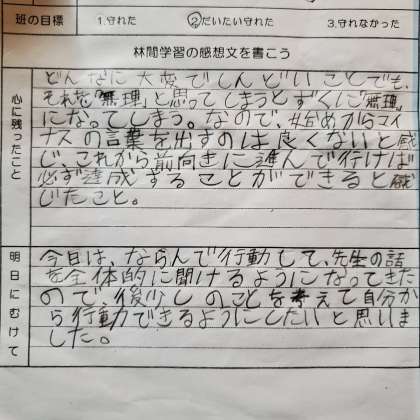 班の目標
1.守れた
2.だいたい守れた
3.守れなかった
林間学習の感想文を書こう
心に残ったこと
どんなに大変でしんどいことでも、
それを「無理」と思ってしまうとすぐに「無理」
になってしまう。なので、始めからマイ
ナスの言葉を出すのは良くないと感
じ、これから前向きに進んで行けば
必ず達成することができると感
じたこと。
明日にむけて
今日は、ならんで行動して、先生の話
を全体的に聞けるようになってきた
ので、後少しのことを考えて自分か
ら行動できるようにしたいと思いま
した。